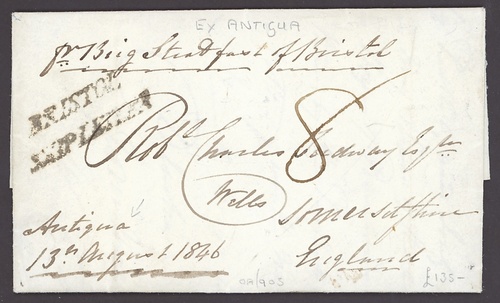 EX ANTIGUA
pr Brig Steadfast of Bristol
BRISTOL
SHIP LETTER
8
Robt Charles Tudway Esqre
Wells
Somersetshire
Antigua
13th August 1846
England
£135-